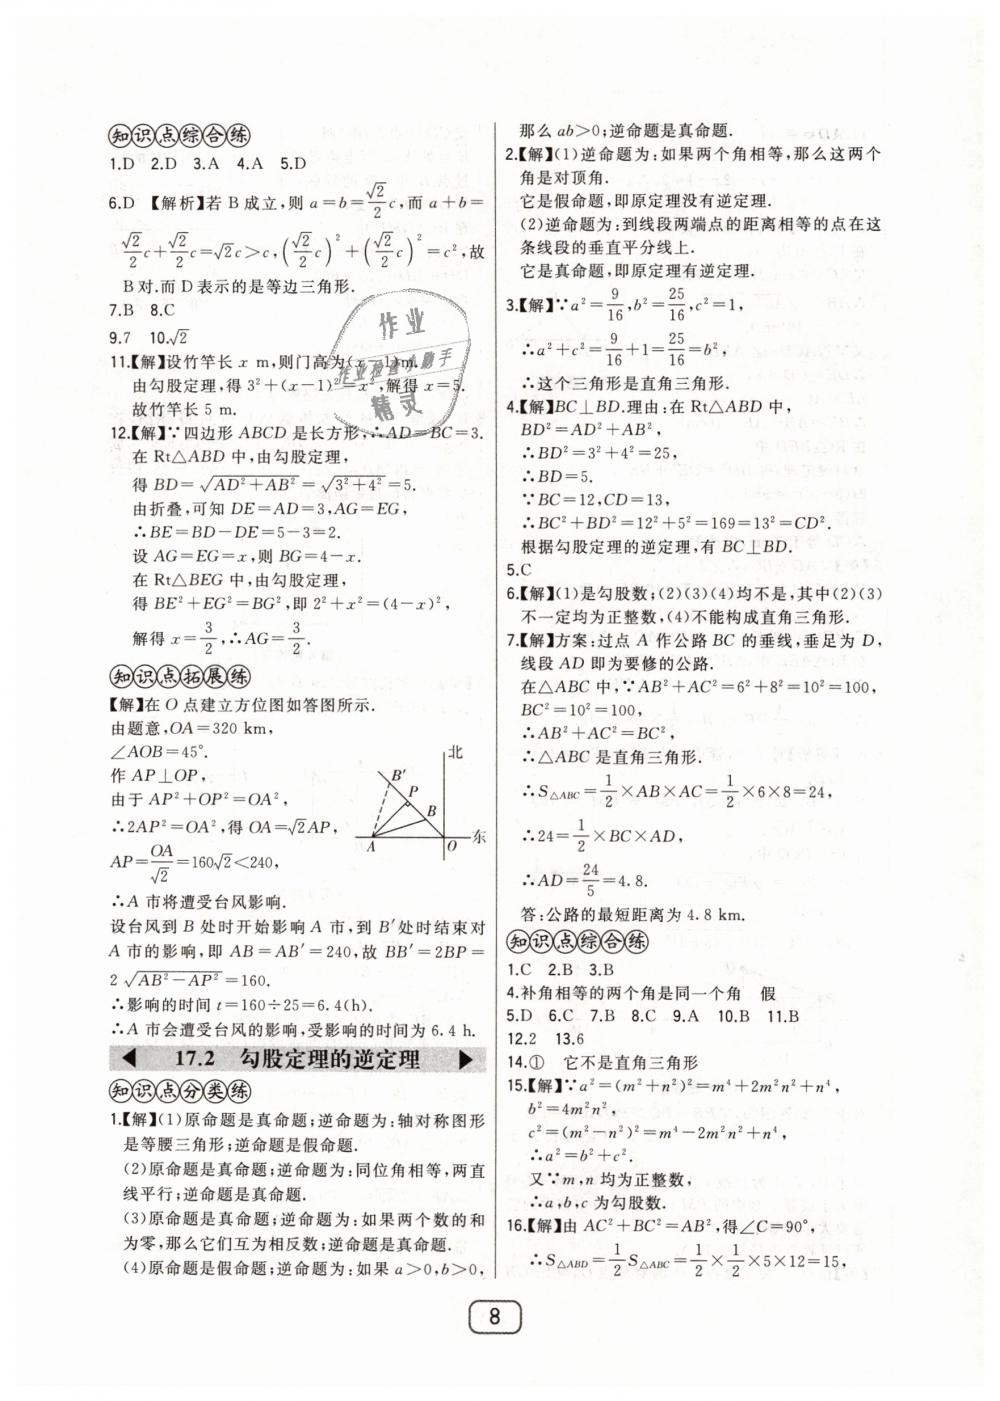 知识点综合练
1.D 2.D 3.A 4.A 5.D
6.D 【解析】若 B 成立,则 a=b=√2/2 c,而 a+b=
√2/2 c+√2/2 c=√2c>c,(√2/2 c)²+(√2/2 c)²=c²,故
B 对.而 D 表示的是等边三角形.
7.B 8.C
9.7 10.√2
11.【解】设竹竿长 x m,则门高为(x-1)m.
由勾股定理,得 3²+(x-1)²=x²,解得 x=5.
故竹竿长 5 m.
12.【解】∵四边形 ABCD 是长方形,∴AD=BC=3.
在 Rt△ABD 中,由勾股定理,
得 BD=√(AD²+AB²)=√(3²+4²)=5.
由折叠,可知 DE=AD=3,AG=EG,
∴BE=BD-DE=5-3=2.
设 AG=EG=x,则 BG=4-x.
在 Rt△BEG 中,由勾股定理,
得 BE²+EG²=BG²,即 2²+x²=(4-x)²,
解得 x=3/2,∴AG=3/2.
知识点拓展练
【解】在 O 点建立方位图如答图所示.
由题意,OA=320 km,
∠AOB=45°.
作 AP⊥OP,
由于 AP²+OP²=OA²,
∴2AP²=OA²,得 OA=√2AP,
AP=OA/√2=160√2<240,
北
B′
P
B
A
O
东
∴A 市将遭受台风影响.
设台风到 B 处时开始影响 A 市,到 B′处时结束对
A 市的影响,即 AB=AB′=240,故 BB′=2BP=
2√(AB²-AP²)=160.
∴影响的时间 t=160÷25=6.4(h).
∴A 市会遭受台风的影响,受影响的时间为 6.4 h.
17.2 勾股定理的逆定理
知识点分类练
1.【解】(1)原命题是真命题;逆命题为:轴对称图形
是等腰三角形;逆命题是假命题.
(2)原命题是真命题;逆命题为:同位角相等,两直
线平行;逆命题是真命题.
(3)原命题是真命题;逆命题为:如果两个数的和
为零,那么它们互为相反数;逆命题是真命题.
(4)原命题是假命题;逆命题为:如果 a>0,b>0,
那么 ab>0;逆命题是真命题.
2.【解】(1)逆命题为:如果两个角相等,那么这两个
角是对顶角.
它是假命题,即原定理没有逆定理.
(2)逆命题为:到线段两端点的距离相等的点在这
条线段的垂直平分线上.
它是真命题,即原定理有逆定理.
3.【解】∵a²=9/16,b²=25/16,c²=1,
∴a²+c²=9/16+1=25/16=b²,
∴这个三角形是直角三角形.
4.【解】BC⊥BD.理由:在 Rt△ABD 中,
BD²=AD²+AB²,
∴BD²=3²+4²=25,
∴BD=5.
∵BC=12,CD=13,
∴BC²+BD²=12²+5²=169=13²=CD².
根据勾股定理的逆定理,有 BC⊥BD.
5.C
6.【解】(1)是勾股数;(2)(3)(4)均不是,其中(2)(3)
不一定均为正整数,(4)不能构成直角三角形.
7.【解】方案:过点 A 作公路 BC 的垂线,垂足为 D,
线段 AD 即为要修的公路.
在△ABC 中,∵AB²+AC²=6²+8²=10²=100,
BC²=10²=100,
∴AB²+AC²=BC²,
∴△ABC 是直角三角形.
∴S△ABC=1/2×AB×AC=1/2×6×8=24,
∴24=1/2×BC×AD,
∴AD=24/5=4.8.
答:公路的最短距离为 4.8 km.
知识点综合练
1.C 2.B 3.B
4.补角相等的两个角是同一个角 假
5.D 6.C 7.B 8.C 9.A 10.B 11.B
12.2 13.6
14.① 它不是直角三角形
15.【解】∵a²=(m²+n²)²=m⁴+2m²n²+n⁴,
b²=4m²n²,
c²=(m²-n²)²=m⁴-2m²n²+n⁴,
∴a²=b²+c².
又∵m,n 均为正整数,
∴a,b,c 为勾股数.
16.【解】由 AC²+BC²=AB²,得∠C=90°,
∴S△ABD=1/2 S△ABC=1/2×1/2×5×12=15,
8
作业
作业检查小助手
精灵